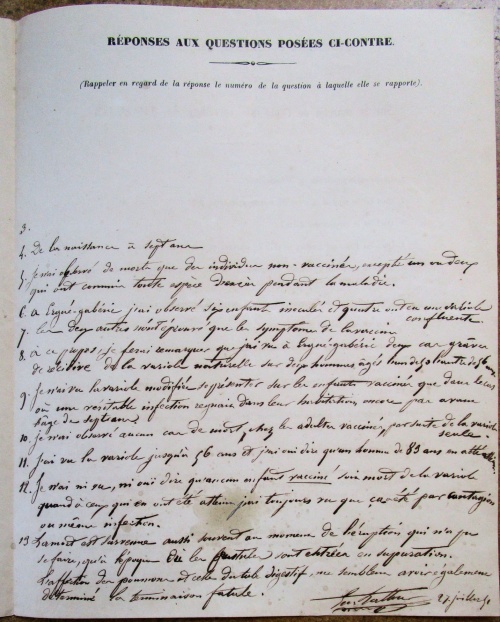 RÉPONSES AUX QUESTIONS POSÉES CI-CONTRE.
(Rappeler en regard de la réponse le numéro de la question à laquelle elle se rapporte).
3.
4. De la naissance à sept ans
5. Je n'ai observé de morts que des individus non-vaccinés, excepté un ou deux
qui ont commis toute espèce d'excès pendant la maladie.
6. à Ergué-gabéric j'ai observé six enfants inoculés et quatre ont eu une variole
confluente
7. les deux autres n'ont éprouvé que les symptômes de la vaccine
8. à ce propos je ferai remarquer que j'ai vu à Ergué-gabéric deux cas graves
de récidive de la variole naturelle sur deux hommes âgés l'un de 50 l'autre de 56 ans.
9. Je n'ai vu la variole modifiée se présenter sur les enfants vaccinés que dans le cas
où une véritable infection régnait dans leur habitation, encore pas avant
l'âge de sept ans.
10. Je n'ai observé aucun cas de mort, chez les adultes vaccinés, par suite de la variole
seule
11. J'ai vu la variole jusqu'à 56 ans et j'ai ouï dire qu'un homme de 83 ans en
12. Je n'ai ni vu, ni ouï dire qu'aucun enfant vacciné soit mort de la variole
quand à ceux qui en ont été atteints j'ai toujours vu que ça été par contagion
ou même infection.
13. La mort est survenue aussi souvent au moment de l'éruption qui n'a pu
se faire, qu'à l'époque où les pustules sont entrées en suppuration.
L'affection des poumons et celle du tube digestif, me semblent avoir également
déterminé la terminaison fatale.
27 juillet